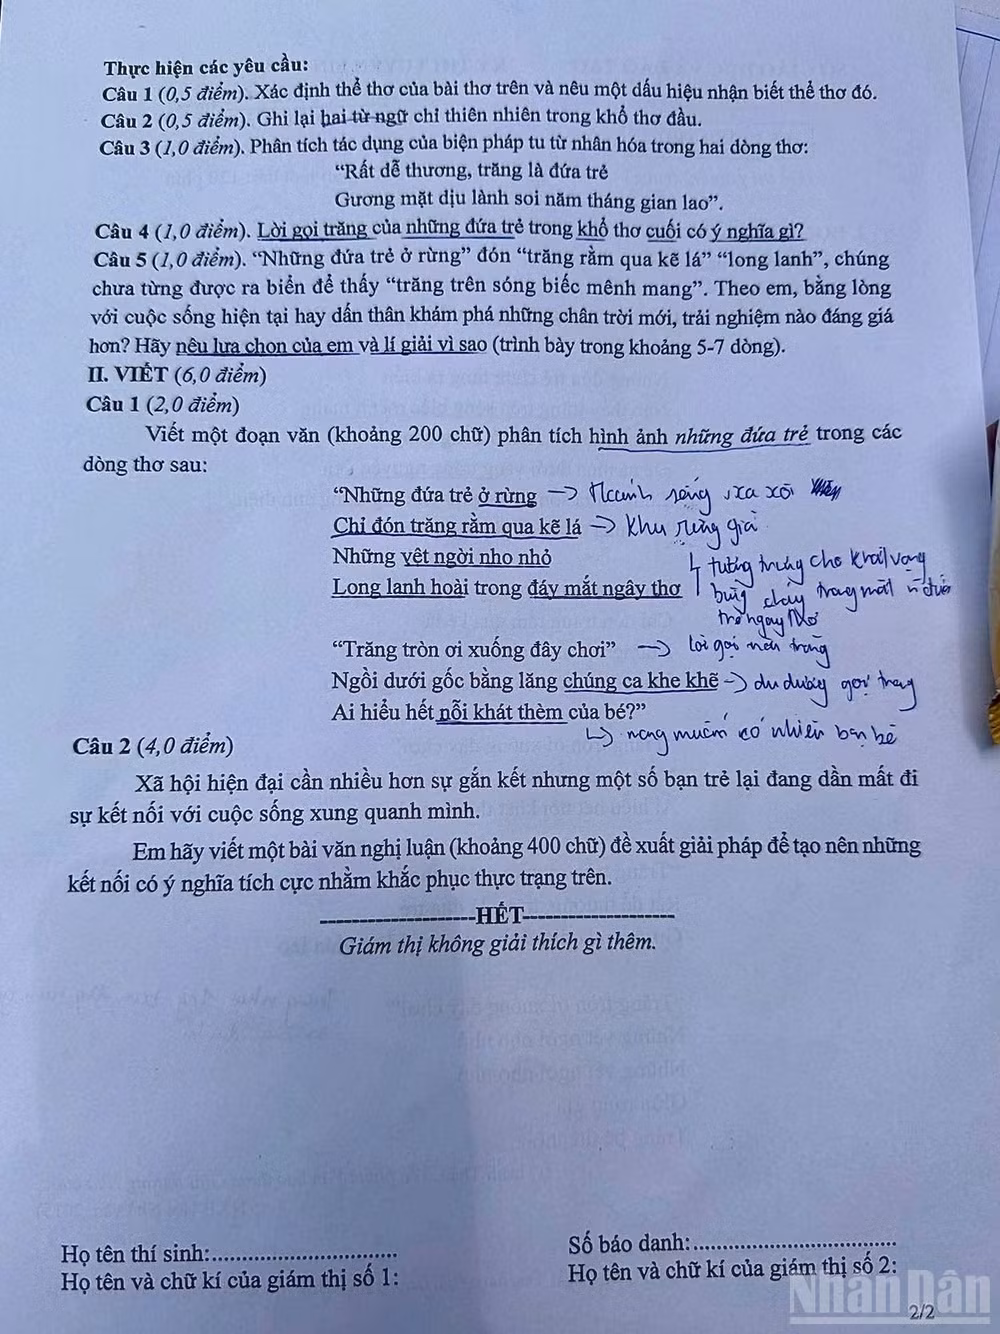 Thực hiện các yêu cầu:
Câu 1 (0,5 điểm). Xác định thể thơ của bài thơ trên và nêu một dấu hiệu nhận biết thể thơ đó.
Câu 2 (0,5 điểm). Ghi lại hai từ ngữ chỉ thiên nhiên trong khổ thơ đầu.
Câu 3 (1,0 điểm). Phân tích tác dụng của biện pháp tu từ nhân hóa trong hai dòng thơ:
“Rất dễ thương, trăng là đứa trẻ
Gương mặt dịu lành soi năm tháng gian lao”.
Câu 4 (1,0 điểm). Lời gọi trăng của những đứa trẻ trong khổ thơ cuối có ý nghĩa gì?
Câu 5 (1,0 điểm). “Những đứa trẻ ở rừng” đón “trăng rằm qua kẽ lá” “long lanh”, chúng
chưa từng được ra biển để thấy “trăng trên sóng biếc mênh mang”. Theo em, bằng lòng
với cuộc sống hiện tại hay dấn thân khám phá những chân trời mới, trải nghiệm nào đáng giá
hơn? Hãy nêu lựa chọn của em và lí giải vì sao (trình bày trong khoảng 5-7 dòng).
II. VIẾT (6,0 điểm)
Câu 1 (2,0 điểm)
Viết một đoạn văn (khoảng 200 chữ) phân tích hình ảnh những đứa trẻ trong các
dòng thơ sau:
“Những đứa trẻ ở rừng -> sống xa xôi
Chỉ đón trăng rằm qua kẽ lá -> khu rừng già
Những vệt ngời nho nhỏ
↳ tượng trưng cho khát vọng
Long lanh hoài trong đáy mắt ngây thơ
bùng cháy trong mắt đứa
trẻ ngây thơ
“Trăng tròn ơi xuống đây chơi” -> lời gọi trăng
Ngồi dưới gốc bằng lăng chúng ca khe khẽ -> du dương gọi trăng
Ai hiểu hết nỗi khát thèm của bé?”
↳ mong muốn có nhiều bạn bè
Câu 2 (4,0 điểm)
Xã hội hiện đại cần nhiều hơn sự gắn kết nhưng một số bạn trẻ lại đang dần mất đi
sự kết nối với cuộc sống xung quanh mình.
Em hãy viết một bài văn nghị luận (khoảng 400 chữ) đề xuất giải pháp để tạo nên những
kết nối có ý nghĩa tích cực nhằm khắc phục thực trạng trên.
--------------------HẾT--------------------
Giám thị không giải thích gì thêm.
Họ tên thí sinh:................................
Số báo danh:...................................
Họ tên và chữ kí của giám thị số 1:
Họ tên và chữ kí của giám thị số 2:
NhanDân
2/2